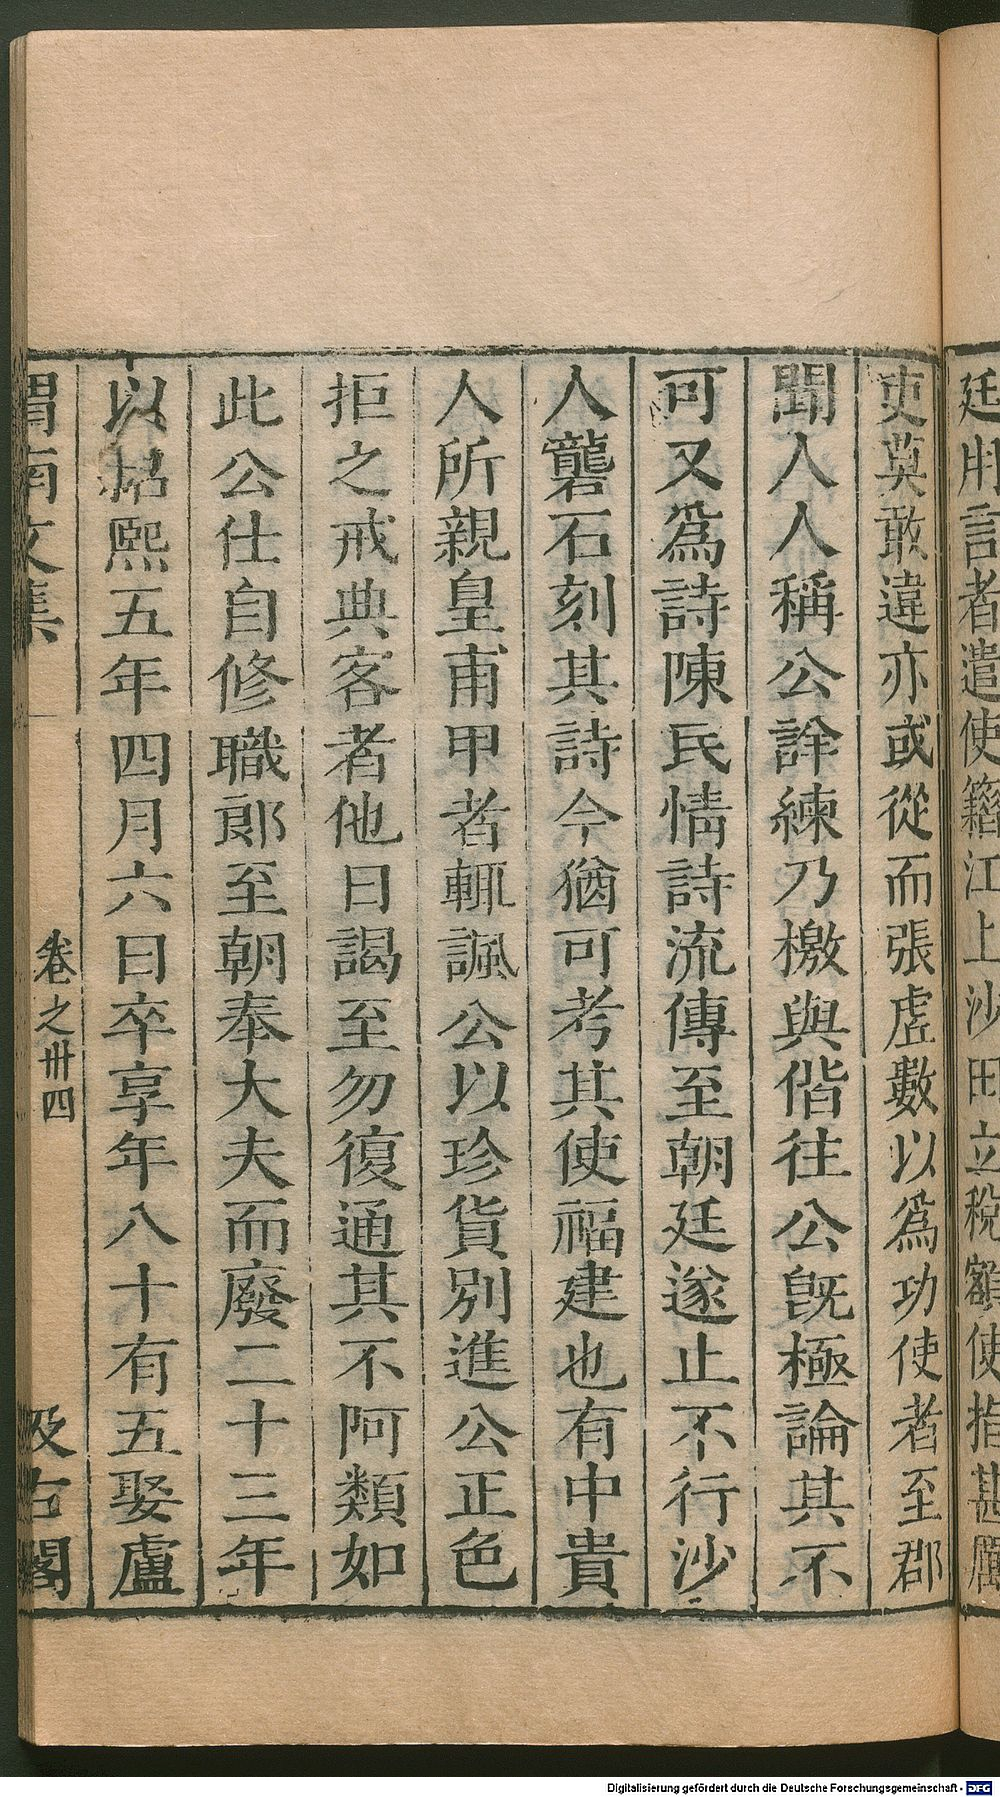 廷用言者遣使籍江上沙田立稅額使指甚厲
吏莫敢違亦或從而張虛數以爲功使者至郡
聞人人稱公詳練乃檄與偕往公旣極論其不
可又爲詩陳民情詩流傳至朝廷遂止不行沙
人礱石刻其詩今猶可考其使福建也有中貴
人所親皇甫甲者輒諷公以珍貨別進公正色
拒之戒典客者他日謁至勿復通其不阿類如
此公仕自修職郎至朝奉大夫而廢二十三年
以紹熙五年四月六日卒享年八十有五娶盧
渭南文集 卷之卅四 汲古閣
Digitalisierung gefördert durch die Deutsche Forschungsgemeinschaft - DFG